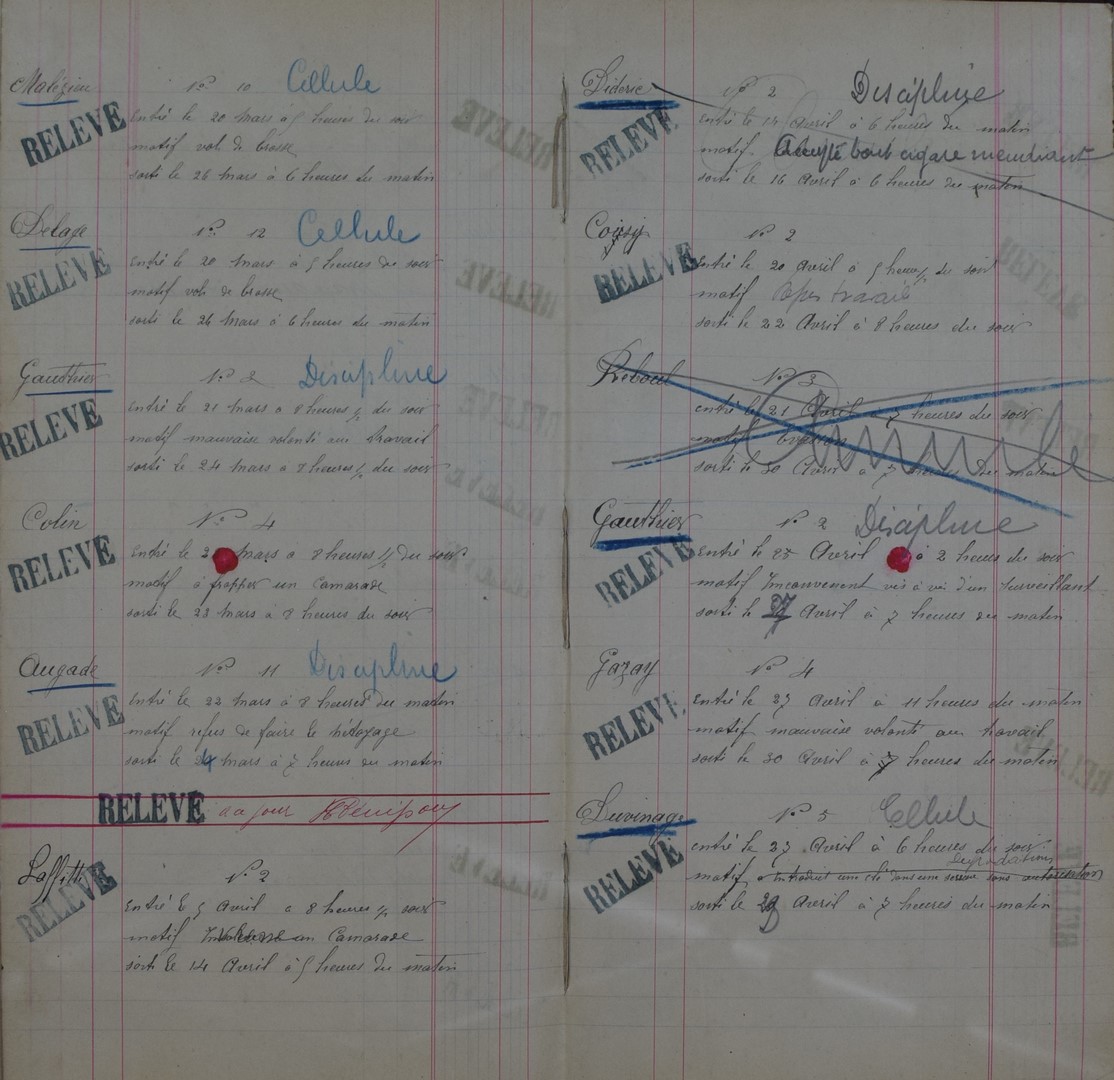 Malézieu N° 10 Cellule
RELEVÉ
Entré le 20 Mars à 5 heures du soir
motif vol de brosse
sorti le 26 Mars à 6 heures du matin
Delage N° 12 Cellule
RELEVÉ
Entré le 20 Mars à 5 heures du soir
motif vol de brosse
sorti le 26 Mars à 6 heures du matin
Gauthier N° 2 Discipline
RELEVÉ
entré le 21 Mars à 8 heures 1/2 du soir
motif mauvaise volonté au travail
sorti le 24 Mars à 8 heures 1/2 du soir
Colin N° 4
RELEVÉ
Entré le Mars à 8 heures 1/2 du soir
motif à frapper un Camarade
sorti le 23 Mars à 8 heures du soir
Augade N° 11 Discipline
RELEVÉ
entré le 22 Mars à 8 heures du matin
motif refus de faire le nétoyage
sorti le 24 Mars à 7 heures du matin
RELEVÉ à ce jour
Laffitte N° 2
RELEVÉ
Entré le 5 Avril à 8 heures 1/2 soir
motif un Camarade
sorti le 14 Avril à 5 heures du matin
Didéric N° 2 Discipline
RELEVÉ
Entré le 14 Avril à 6 heures du matin
motif Accepté bout cigare mendiant
sorti le 16 Avril à 6 heures du matin
N° 2
RELEVÉ
Entré le 20 Avril à 5 heures du soir
motif travail
sorti le 22 Avril à 8 heures du soir
Reboul N° 3
entré le 21 Avril à 7 heures du soir
motif Evasion
Annulé
sorti le 30 Avril à 7 heures du matin
Gauthier N° 2 Discipline
RELEVÉ
Entré le 25 Avril à 2 heures du soir
motif Inconvenent vis à vis d'un surveillant
sorti le 27 Avril à 7 heures du matin
Gazay N° 4
RELEVÉ
entré le 27 Avril à 11 heures du matin
motif mauvaise volonté au travail
sorti le 30 Avril à 7 heures du matin
Duvinage N° 5 Cellule
RELEVÉ
entré le 27 Avril à 6 heures du soir
dégradations
motif a introduit une clé dans une serrure sans autorisation
sorti le Avril à 7 heures du matin